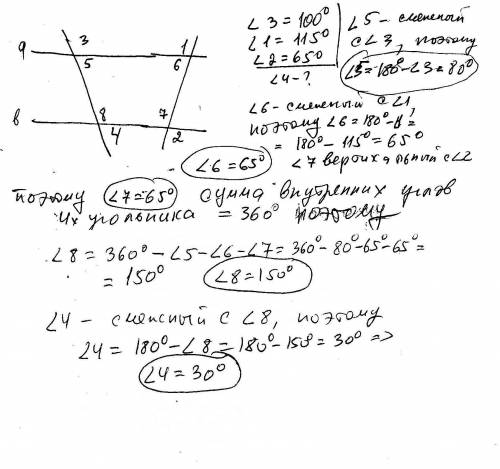 а
в
3
1
5
6
8
7
4
2
∠3 = 100°
∠1 = 115°
∠2 = 65°
∠4 - ?
∠5 - смежный
с ∠3, поэтому
∠5 = 180° - ∠3 = 80°
∠6 - смежный с ∠1,
поэтому ∠6 = 180° - ∠1 =
= 180° - 115° = 65°
∠6 = 65°
∠7 вертикальный с ∠2
поэтому ∠7 = 65° сумма внутренних углов
4х угольника = 360° поэтому
∠8 = 360° - ∠5 - ∠6 - ∠7 = 360° - 80° - 65° - 65° =
= 150° ∠8 = 150°
∠4 - смежный с ∠8, поэтому
∠4 = 180° - ∠8 = 180° - 150° = 30° =>
∠4 = 30°